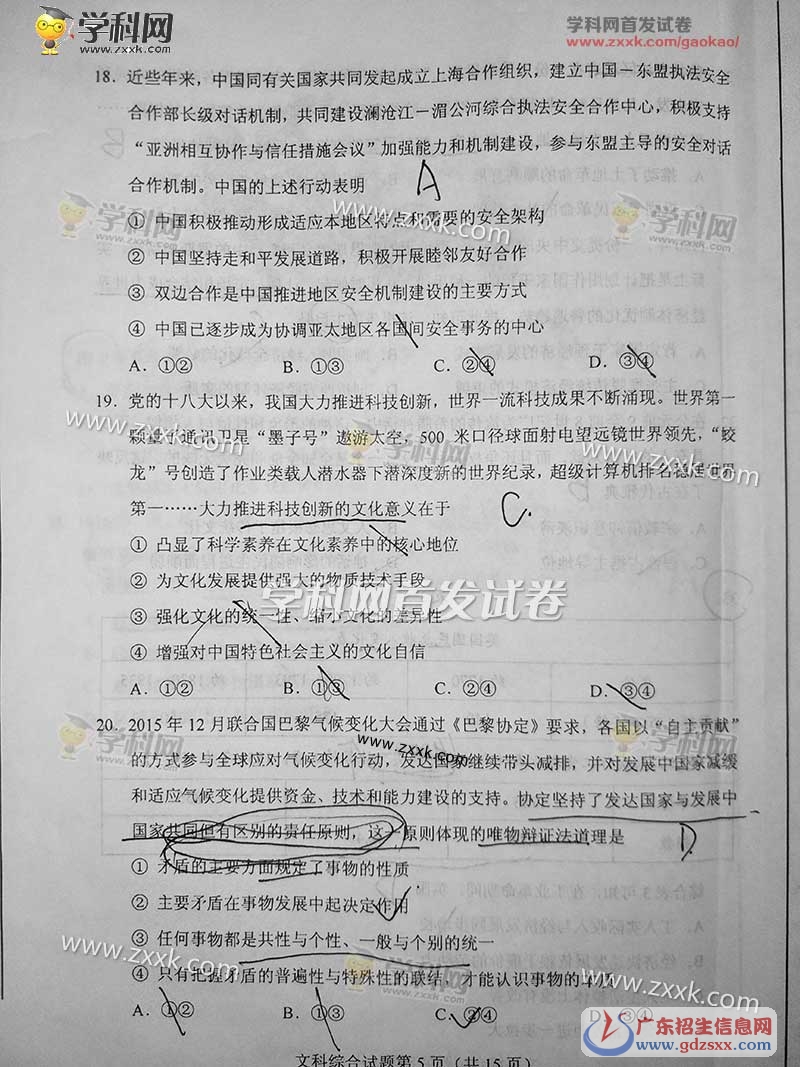 学科网
www.zxxk.com
学科网首发试卷
www.zxxk.com/gaokao/
18. 近些年来，中国同有关国家共同发起成立上海合作组织，建立中国－东盟执法安全
合作部长级对话机制，共同建设澜沧江－湄公河综合执法安全合作中心，积极支持
“亚洲相互协作与信任措施会议”加强能力和机制建设，参与东盟主导的安全对话
合作机制。中国的上述行动表明
A
① 中国积极推动形成适应本地区特点和需要的安全架构
② 中国坚持走和平发展道路，积极开展睦邻友好合作
③ 双边合作是中国推进地区安全机制建设的主要方式
④ 中国已逐步成为协调亚太地区各国间安全事务的中心
A. ①② B. ①③ C. ②④ D. ③④
19. 党的十八大以来，我国大力推进科技创新，世界一流科技成果不断涌现。世界第一
颗量子通讯卫星“墨子号”遨游太空，500 米口径球面射电望远镜世界领先，“蛟
龙”号创造了作业类载人潜水器下潜深度新的世界纪录，超级计算机排名稳居世界
第一……大力推进科技创新的文化意义在于
C.
① 凸显了科学素养在文化素养中的核心地位
② 为文化发展提供强大的物质技术手段
③ 强化文化的统一性、缩小文化的差异性
④ 增强对中国特色社会主义的文化自信
学科网首发试卷
A. ①② B. ①③ C. ②④ D. ③④
20. 2015 年 12 月联合国巴黎气候变化大会通过《巴黎协定》要求，各国以“自主贡献”
的方式参与全球应对气候变化行动，发达国家继续带头减排，并对发展中国家减缓
和适应气候变化提供资金、技术和能力建设的支持。协定坚持了发达国家与发展中
国家共同但有区别的责任原则，这一原则体现的唯物辩证法道理是
D
① 矛盾的主要方面规定了事物的性质
② 主要矛盾在事物发展中起决定作用
③ 任何事物都是共性与个性、一般与个别的统一
④ 只有把握矛盾的普遍性与特殊性的联结，才能认识事物的本质
A. ①② B. ①③ C. ②④ D. ③④
文科综合试题第 5 页（共 15 页）
学科网
www.zxxk.com
学科网
www.zxxk.com
www.zxxk.com
www.zxxk.com
www.zxxk.com
www.zxxk.com
www.zxxk.com
广东招生信息网
www.gdzsxx.com